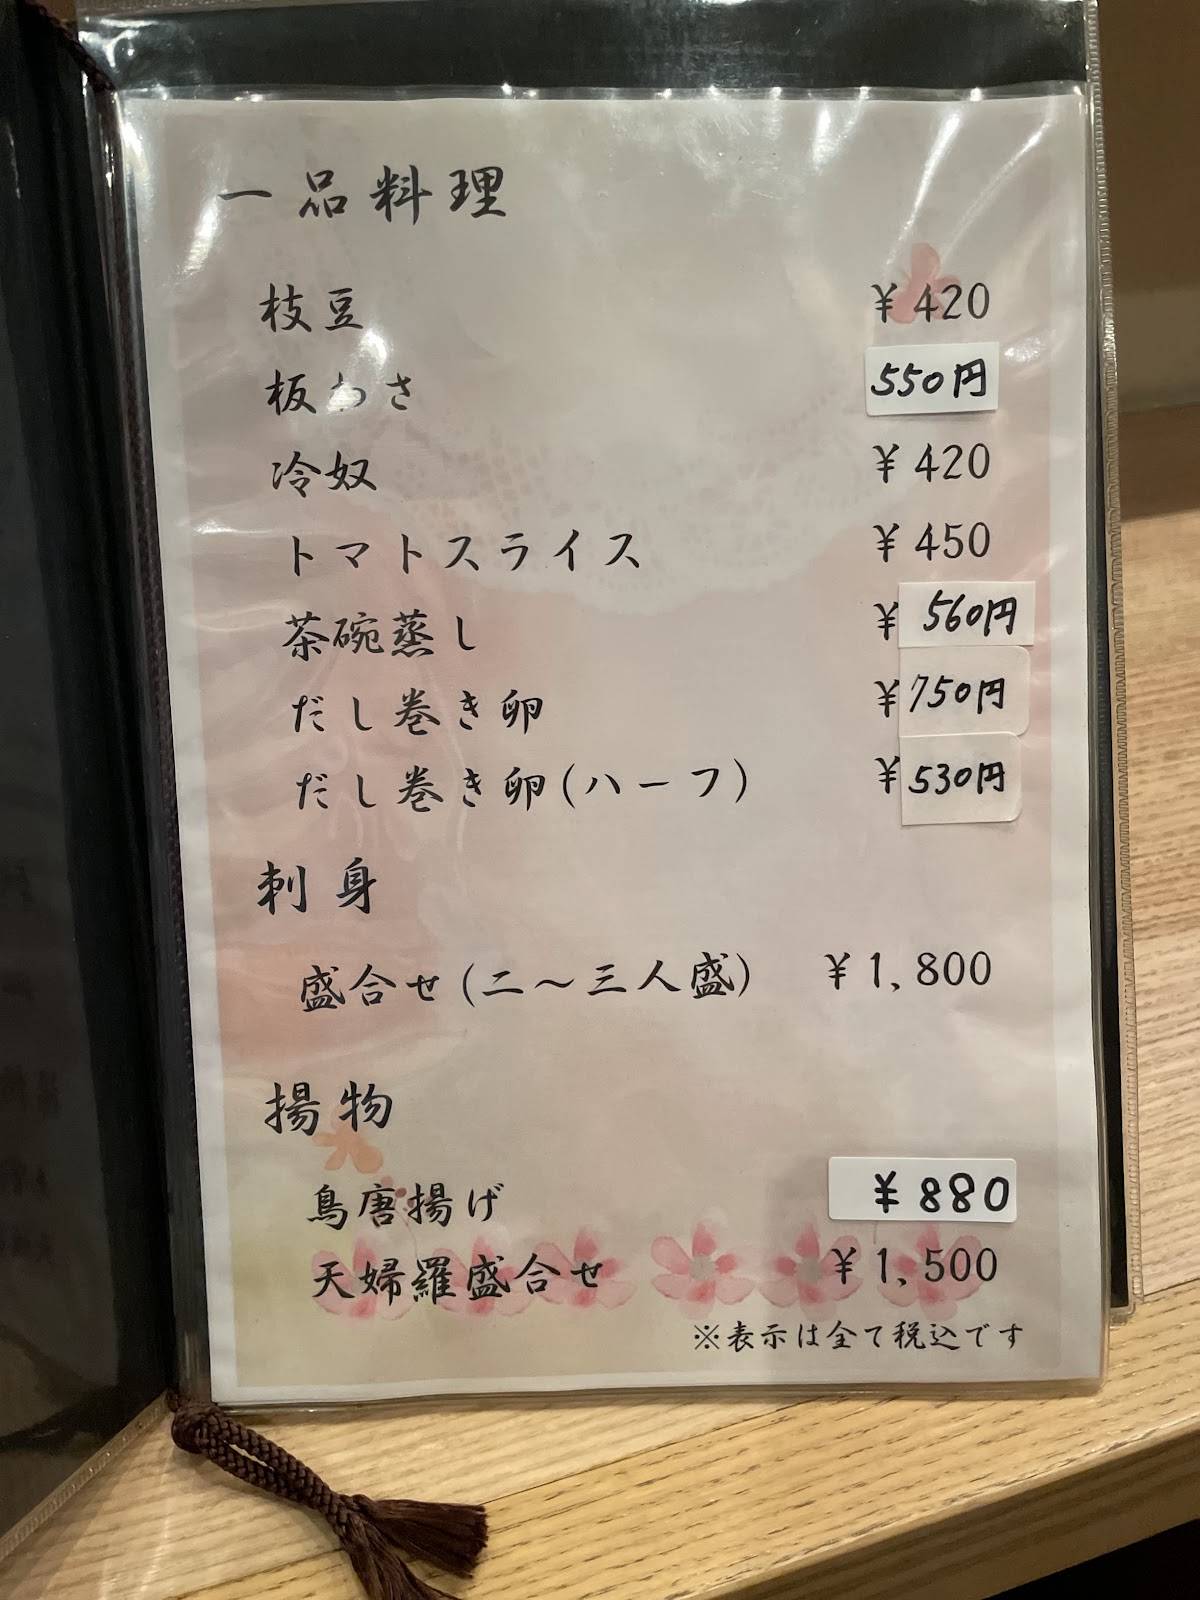 一品料理
枝豆 ¥420
板わさ 550円
冷奴 ¥420
トマトスライス ¥450
茶碗蒸し ¥560円
だし巻き卵 ¥750円
だし巻き卵(ハーフ) ¥530円
刺身
盛合せ(二〜三人盛) ¥1,800
揚物
鳥唐揚げ ¥880
天婦羅盛合せ ¥1,500
※表示は全て税込です